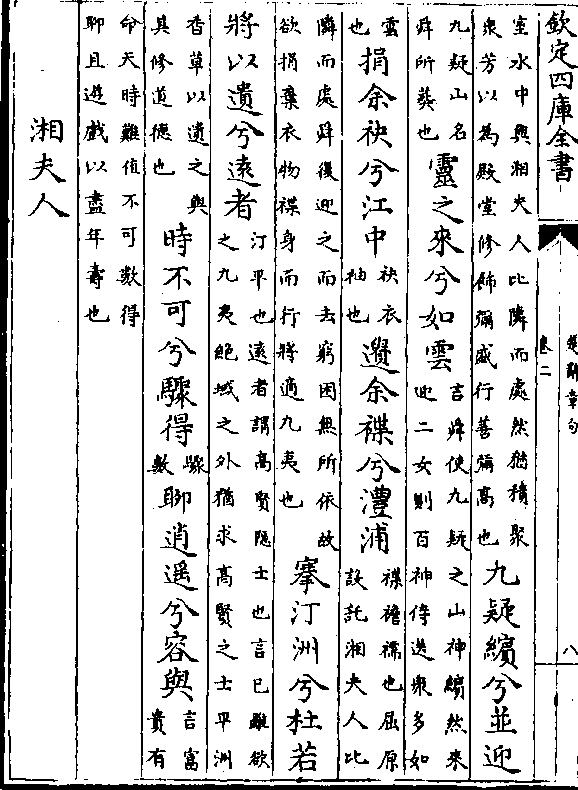 欽定四庫全書
楚辭章句
卷二
八
室水中與湘夫人比隣而處然猶積聚
衆芳以為殿堂修飾彌盛行善彌高也
九疑繽兮並迎
九疑山名
舜所葬也
靈之來兮如雲
言舜使九疑之山神繽然來
迎二女則百神侍送衆多如
雲
也
捐余袂兮江中
袂衣
袖也
遺余褋兮澧浦
褋襜襦也屈原
設託湘夫人比
隣而處舜復迎之而去窮困無所依故
欲捐棄衣物褋身而行將適九夷也
搴汀洲兮杜若
將以遺兮遠者
汀平也遠者謂高賢隠士也言已雖欲
之九夷絶域之外猶求高賢之士平洲
香草以遺之與
其修道德也
時不可兮驟得
驟
數
聊逍遥兮容與
言富
貴有
命天時難值不可數得
聊且遊戲以盡年壽也
湘夫人